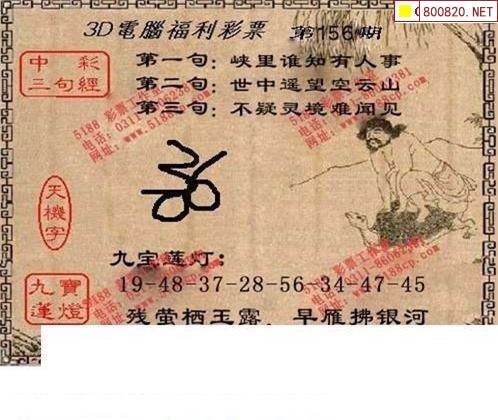 800820.NET
3D電腦福利彩票 第156期
中彩
三句經
第一句：峡里谁知有人事
第二句：世中遥望空云山
第三句：不疑灵境难闻见
5188 彩票工作室
网址：www.5188cp.com
天機字
九宝莲灯：
九寶蓮燈
19-48-37-28-56-34-47-45
残萤栖玉露，早雁拂银河